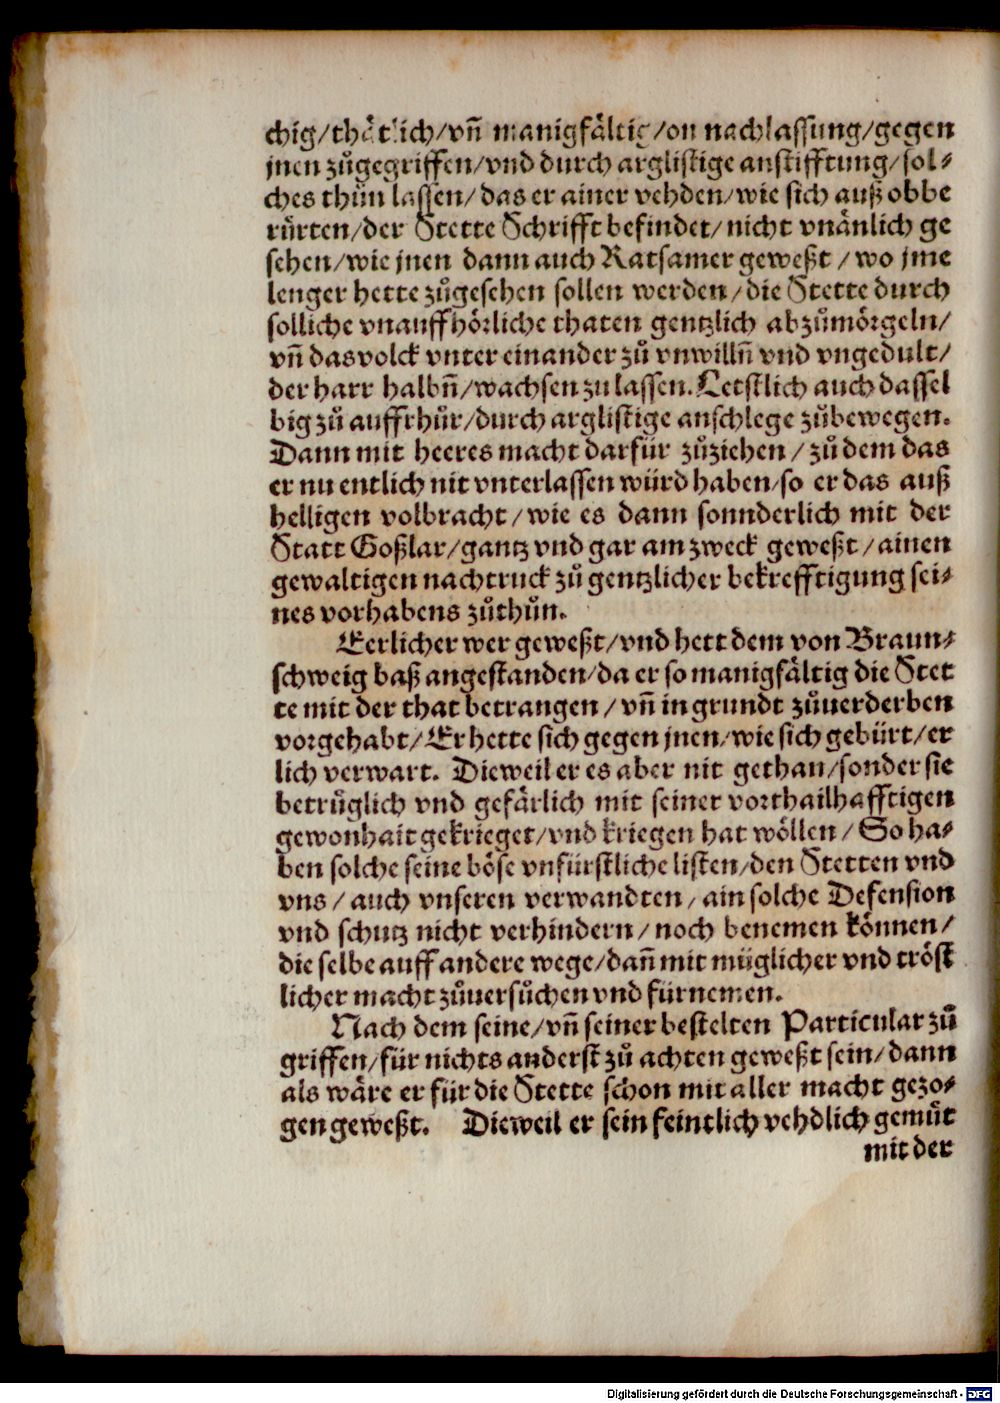 chig/thätlich/vñ manigfältig/on nachlassung/gegen
jnen zůgegriffen/vnd durch arglistige anstifftung/sol⸗
ches thůn lassen/das er ainer vehden/wie sich auß obbe
rürten/der Stette Schrifft befindet/nicht vnänlich ge
sehen/wie jnen dann auch Ratsamer geweßt/wo jme
lenger hette zůgesehen sollen werden/die Stette durch
solliche vnauffhörliche thaten gentzlich abzůmörgeln/
vñ das volck vnter einander zů vnwilln̄ vnd vngedult/
der harr halbn̄/wachsen zu lassen. Letstlich auch dassel
big zů auffrhůr/durch arglistige anschlege zůbewegen.
Dann mit heeres macht darfür zůziehen/zů dem das
er nu entlich nit vnterlassen würd haben/so er das auß
helligen volbracht/wie es dann sonnderlich mit der
Statt Goßlar/gantz vnd gar am zweck geweßt/ainen
gewaltigen nachtruck zů gentzlicher bekrefftigung sei⸗
nes vorhabens zůthůn.
Eerlicher wer geweßt/vnd hett dem von Braun⸗
schweig baß angestanden/da er so manigfältig die Stet
te mit der that betrangen/vñ in grundt zůuerderben
vorgehabt/Er hette sich gegen jnen/wie sich gebürt/er
lich verwart. Dieweil er es aber nit gethan/sonder sie
betrüglich vnd gefärlich mit seiner vorthailhafftigen
gewonhait gekrieget/vnd kriegen hat wöllen/So ha⸗
ben solche seine böse vnfürstliche listen/den Stetten vnd
vns/auch vnseren verwandten/ain solche Defension
vnd schutz nicht verhindern/noch benemen können/
die selbe auff andere wege/dañ mit müglicher vnd tröst
licher macht zůuersůchen vnd fürnemen.
Nach dem seine/vñ seiner bestelten Particular zů
griffen/für nichts anderst zů achten geweßt sein/dann
als wäre er für die Stette schon mit aller macht gezo⸗
gen geweßt. Dieweil er sein feintlich vehdlich gemüt
mit der
Digitalisierung gefördert durch die Deutsche Forschungsgemeinschaft - DFG